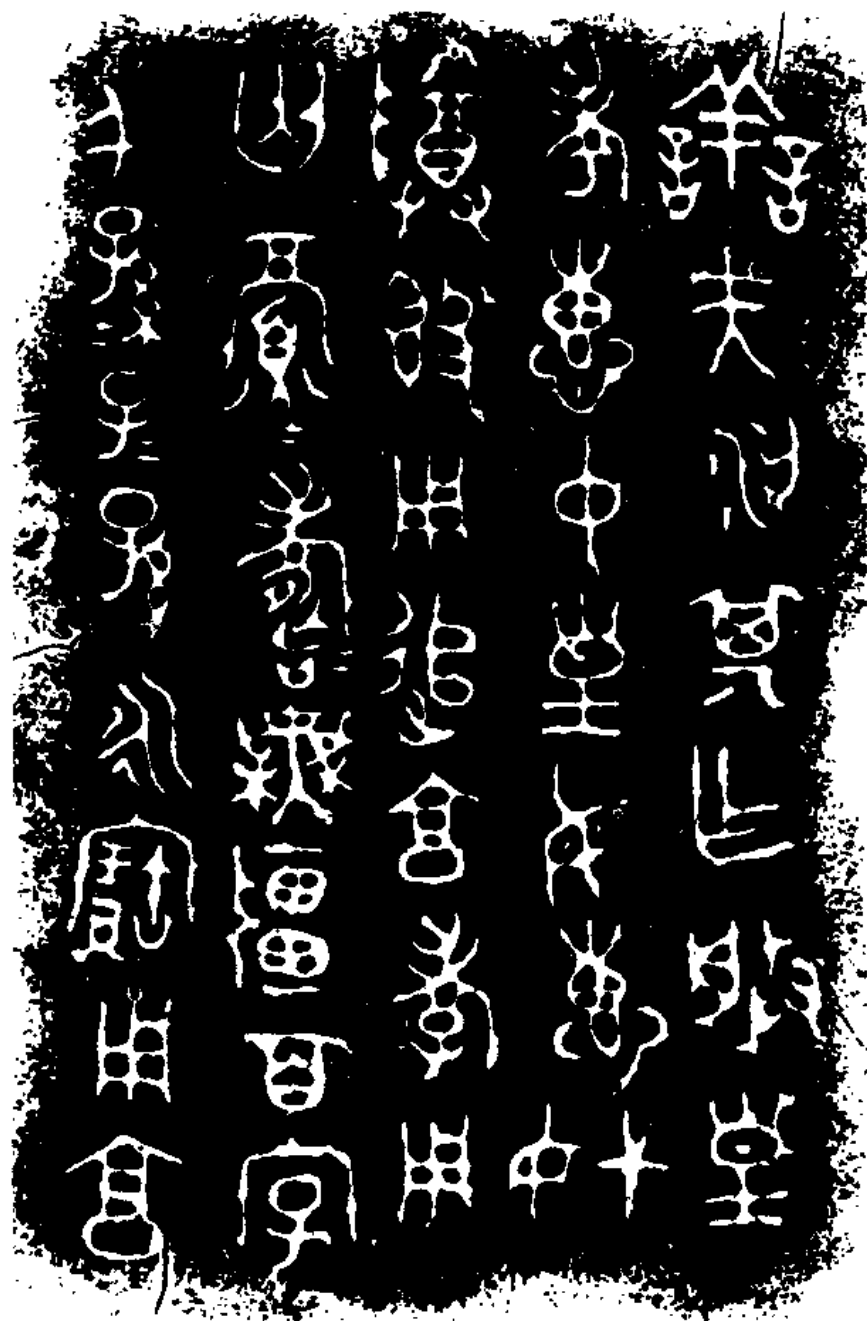 善夫汈其乍朕皇
考惠中皇母惠妣
尊簋用追享孝用
匄眉壽無疆百字
千孫子孫永寶用享